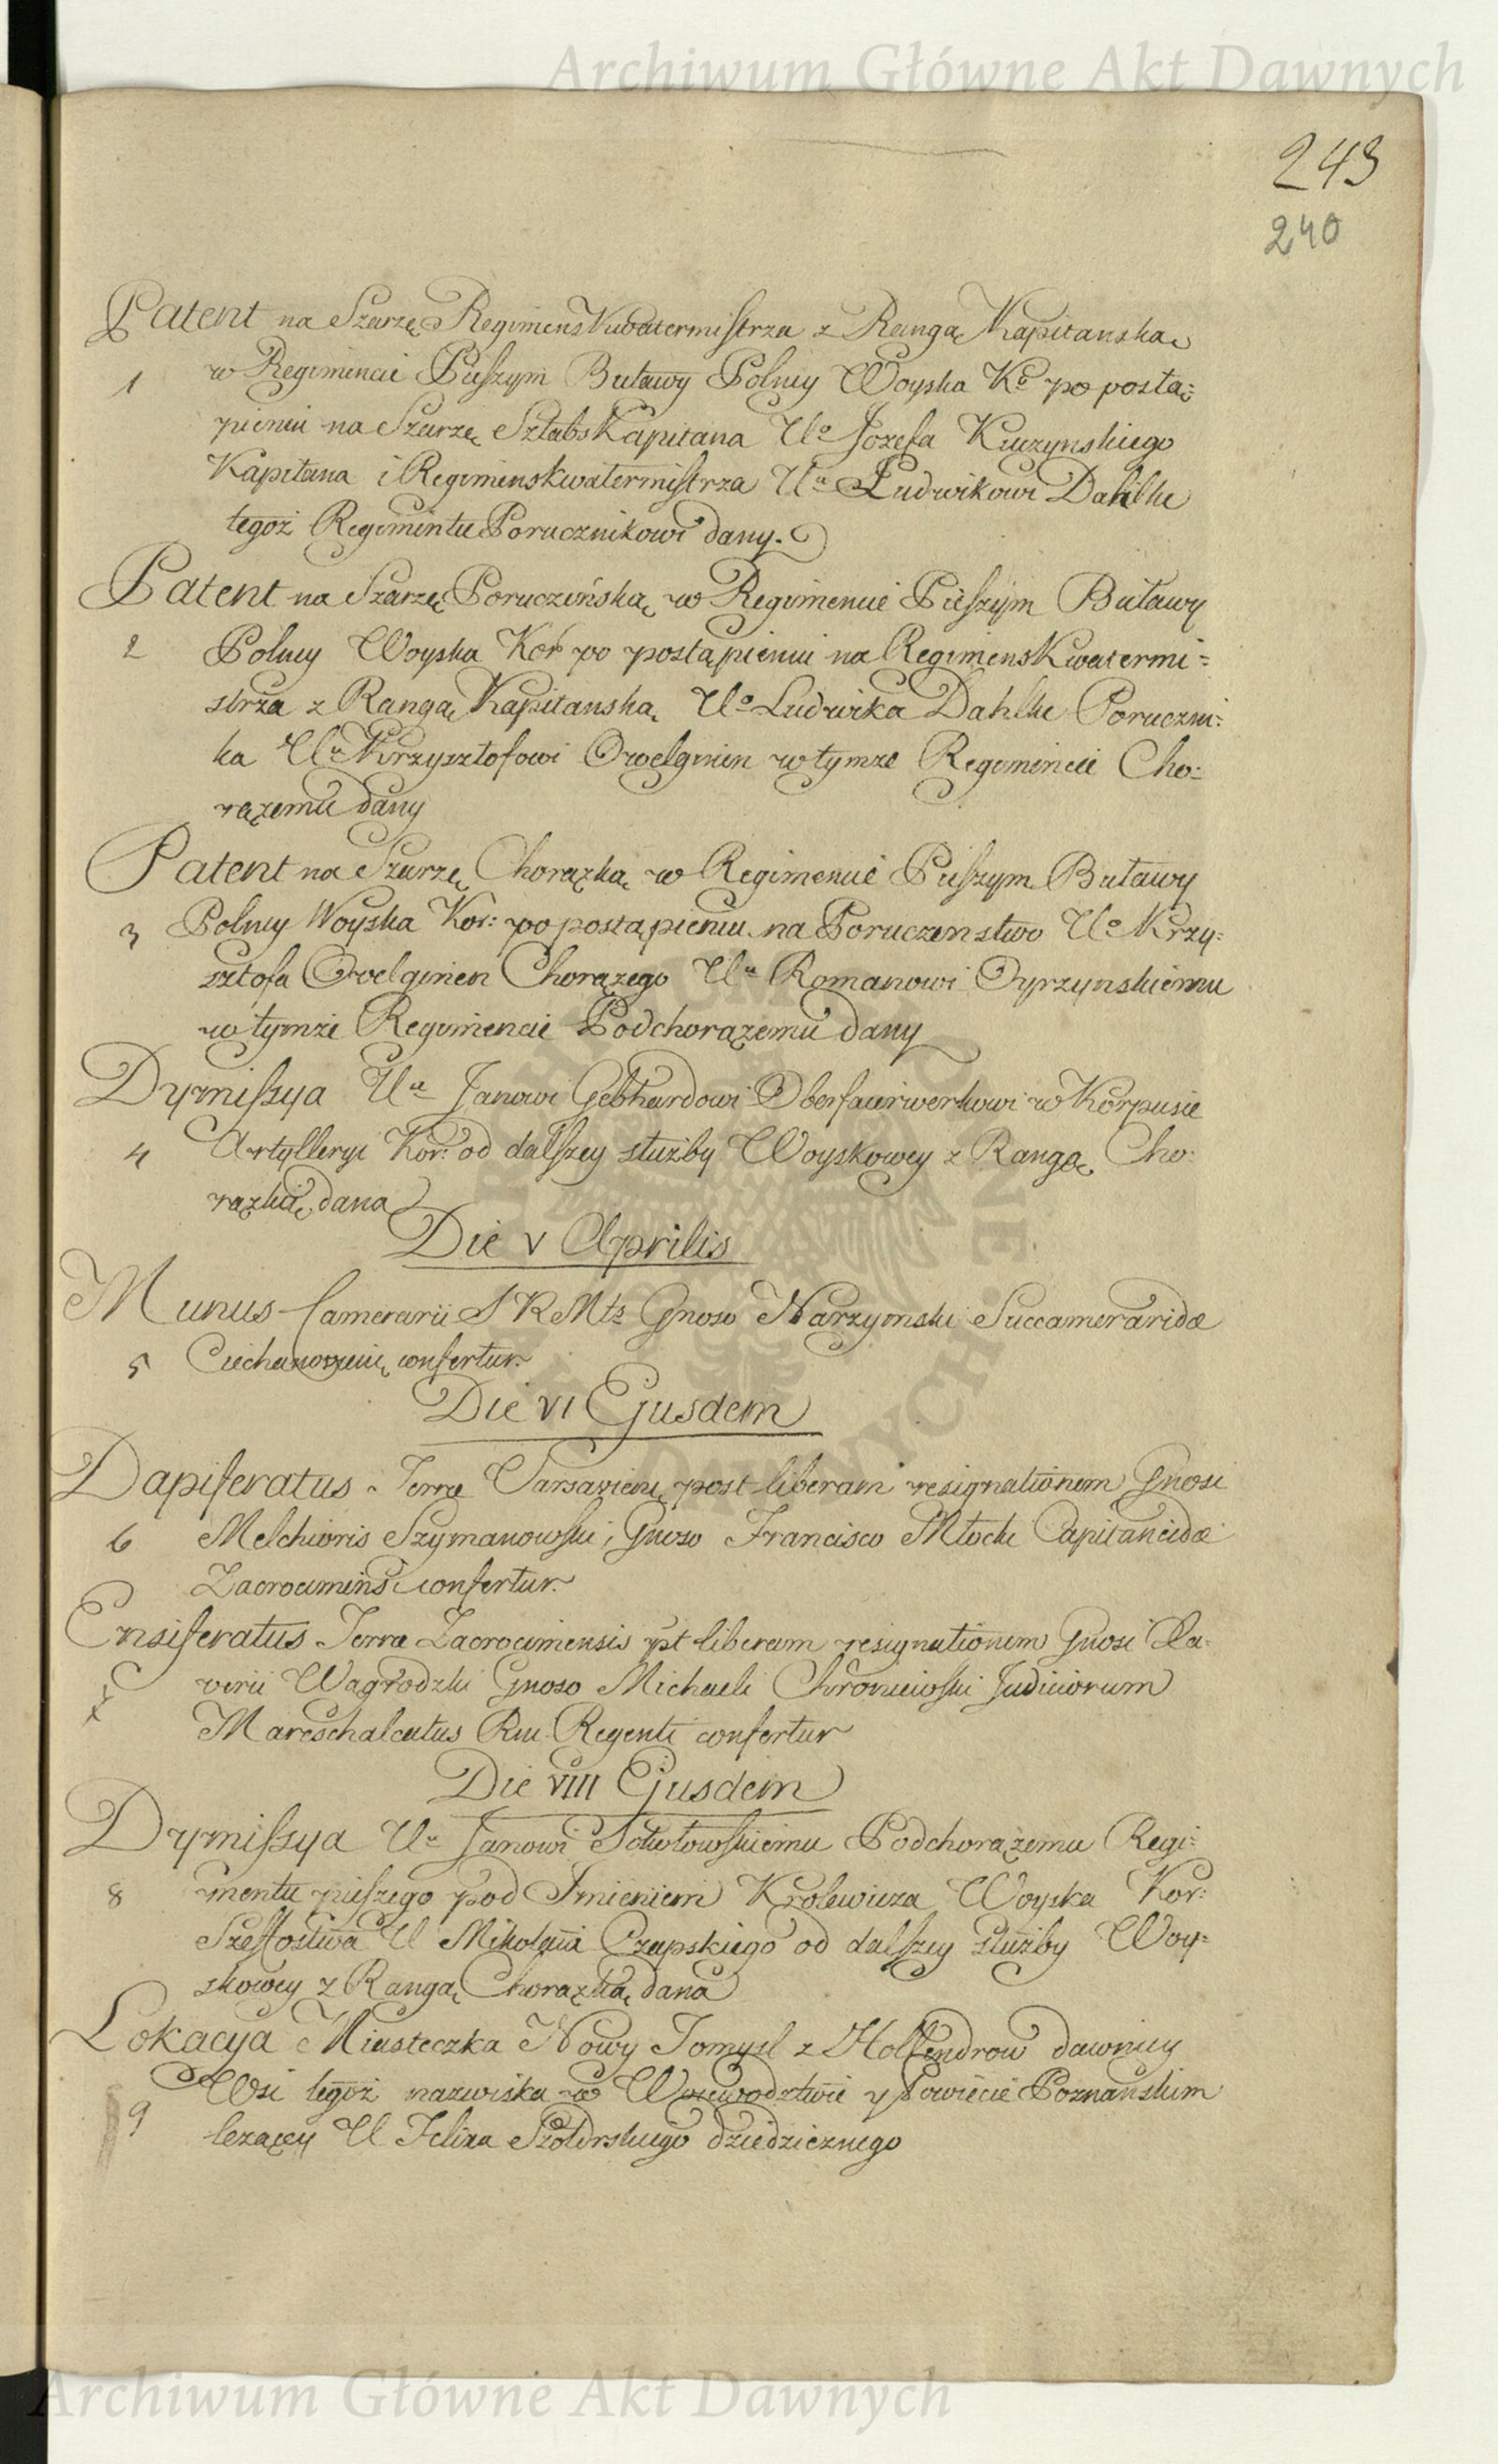 Archiwum Główne Akt Dawnych
243
240
Patent na Szarżę Regimenskwatermistrza z Rangą Kapitanską
1 w Regimencie Pieszym Buławy Polney Woyska Ko po postą=
pieniu na Szarżę SztabsKapitana Uo Jozefa Kuczynskiego
Kapitana i Regimenskwatermistrza Uu Ludwikowi Dahlke
tegoż Regimentu Porucznikowi dany.
Patent na Szarżę Poruczińską w Regimencie Pieszym Buławy
2 Polney Woyska Kor po postąpieniu na RegimensKwatermi=
strza z Rangą Kapitanską Uo Ludwika Dahlke Poruczni:
ka Uu Krzysztofowi Owelginen w tymże Regimencie Cho:
rążemu dany
Patent na Szarżę Chorążką w Regimencie Pieszym Buławy
3 Polney Woyska Kor: po postąpieniu na Poruczenstwo Uo Krzy:
sztofa Owelginen Chorążego Uu Romanowi Dyrzynskiemu
w tymże Regimencie Podchorążemu dany
Dymissya Uu Janowi Gebhardowi Oberfaierwerkowi w Korpusie
4 Artylleryi Kor: od dalszey służby Woyskowey z Rangą Cho:
rążką dana
Die V Aprilis
Munus Camerarii S R Mts Gnoso Narzymski Succameraridæ
5 Ciechanovien confertur.
Die VI Ejusdem
Dapiferatus Terræ Varsavien post liberam resignationem Gnosi
6 Melchioris Szymanowski, Gnoso Francisco Młocki Capitaneidæ
Zacrocimens confertur.
Ensiferatus Terræ Zacrocimensis pt liberam resignationem Gnosi Xa:
7 verii Wagrodzki Gnoso Michaeli Chroniewski Judiciorum
Mareschalcatus Rni Regenti confertur
Die VIII Ejusdem
Dymissya Uu Janowi Sokołowskiemu Podchorążemu Regi:
8 mentu pieszego pod Imieniem Krolewicza Woyska Kor:
Szeffostwa U Mikołaia Czapskiego od dalszey służby Woy=
skowey z Rangą Chorążką dana
Lokacya Miasteczka Nowy Tomysl z Hollendrow dawniey
9 Wsi tegoż nazwiska w Woiewodztwie y Powiecie Poznanskim
leżącey U Felixa Szołdrskiego dziedzicznego
Archiwum Główne Akt Dawnych